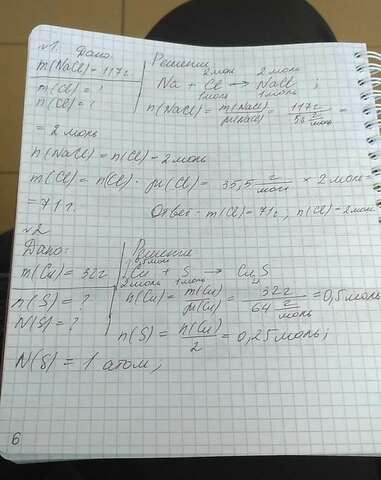 №1. Дано:
Решение
m(NaCl) = 117г
m(Cl) = ?
n(Cl) = ?
2 моль 2 моль
Na + Cl → NaCl ;
1 моль 1 моль
n(NaCl) = m(NaCl) / μ(NaCl) = 117г / г/моль =
= 2 моль
n(NaCl) = n(Cl) = 2 моль
m(Cl) = n(Cl) · μ(Cl) = 35,5 г/моль × 2 моль =
= 71 г. Ответ: m(Cl) = 71г, n(Cl) = 2 моль.
№2
Дано:
Решение
m(Cu) = 32г
n(S) = ?
N(S) = ?
0,5 моль
2Cu + S → Cu2S
2 моль 1 моль
n(Cu) = m(Cu) / μ(Cu) = 32г / 64 г/моль = 0,5 моль
n(S) = n(Cu) / 2 = 0,25 моль;
N(S) = 1 атом;
6